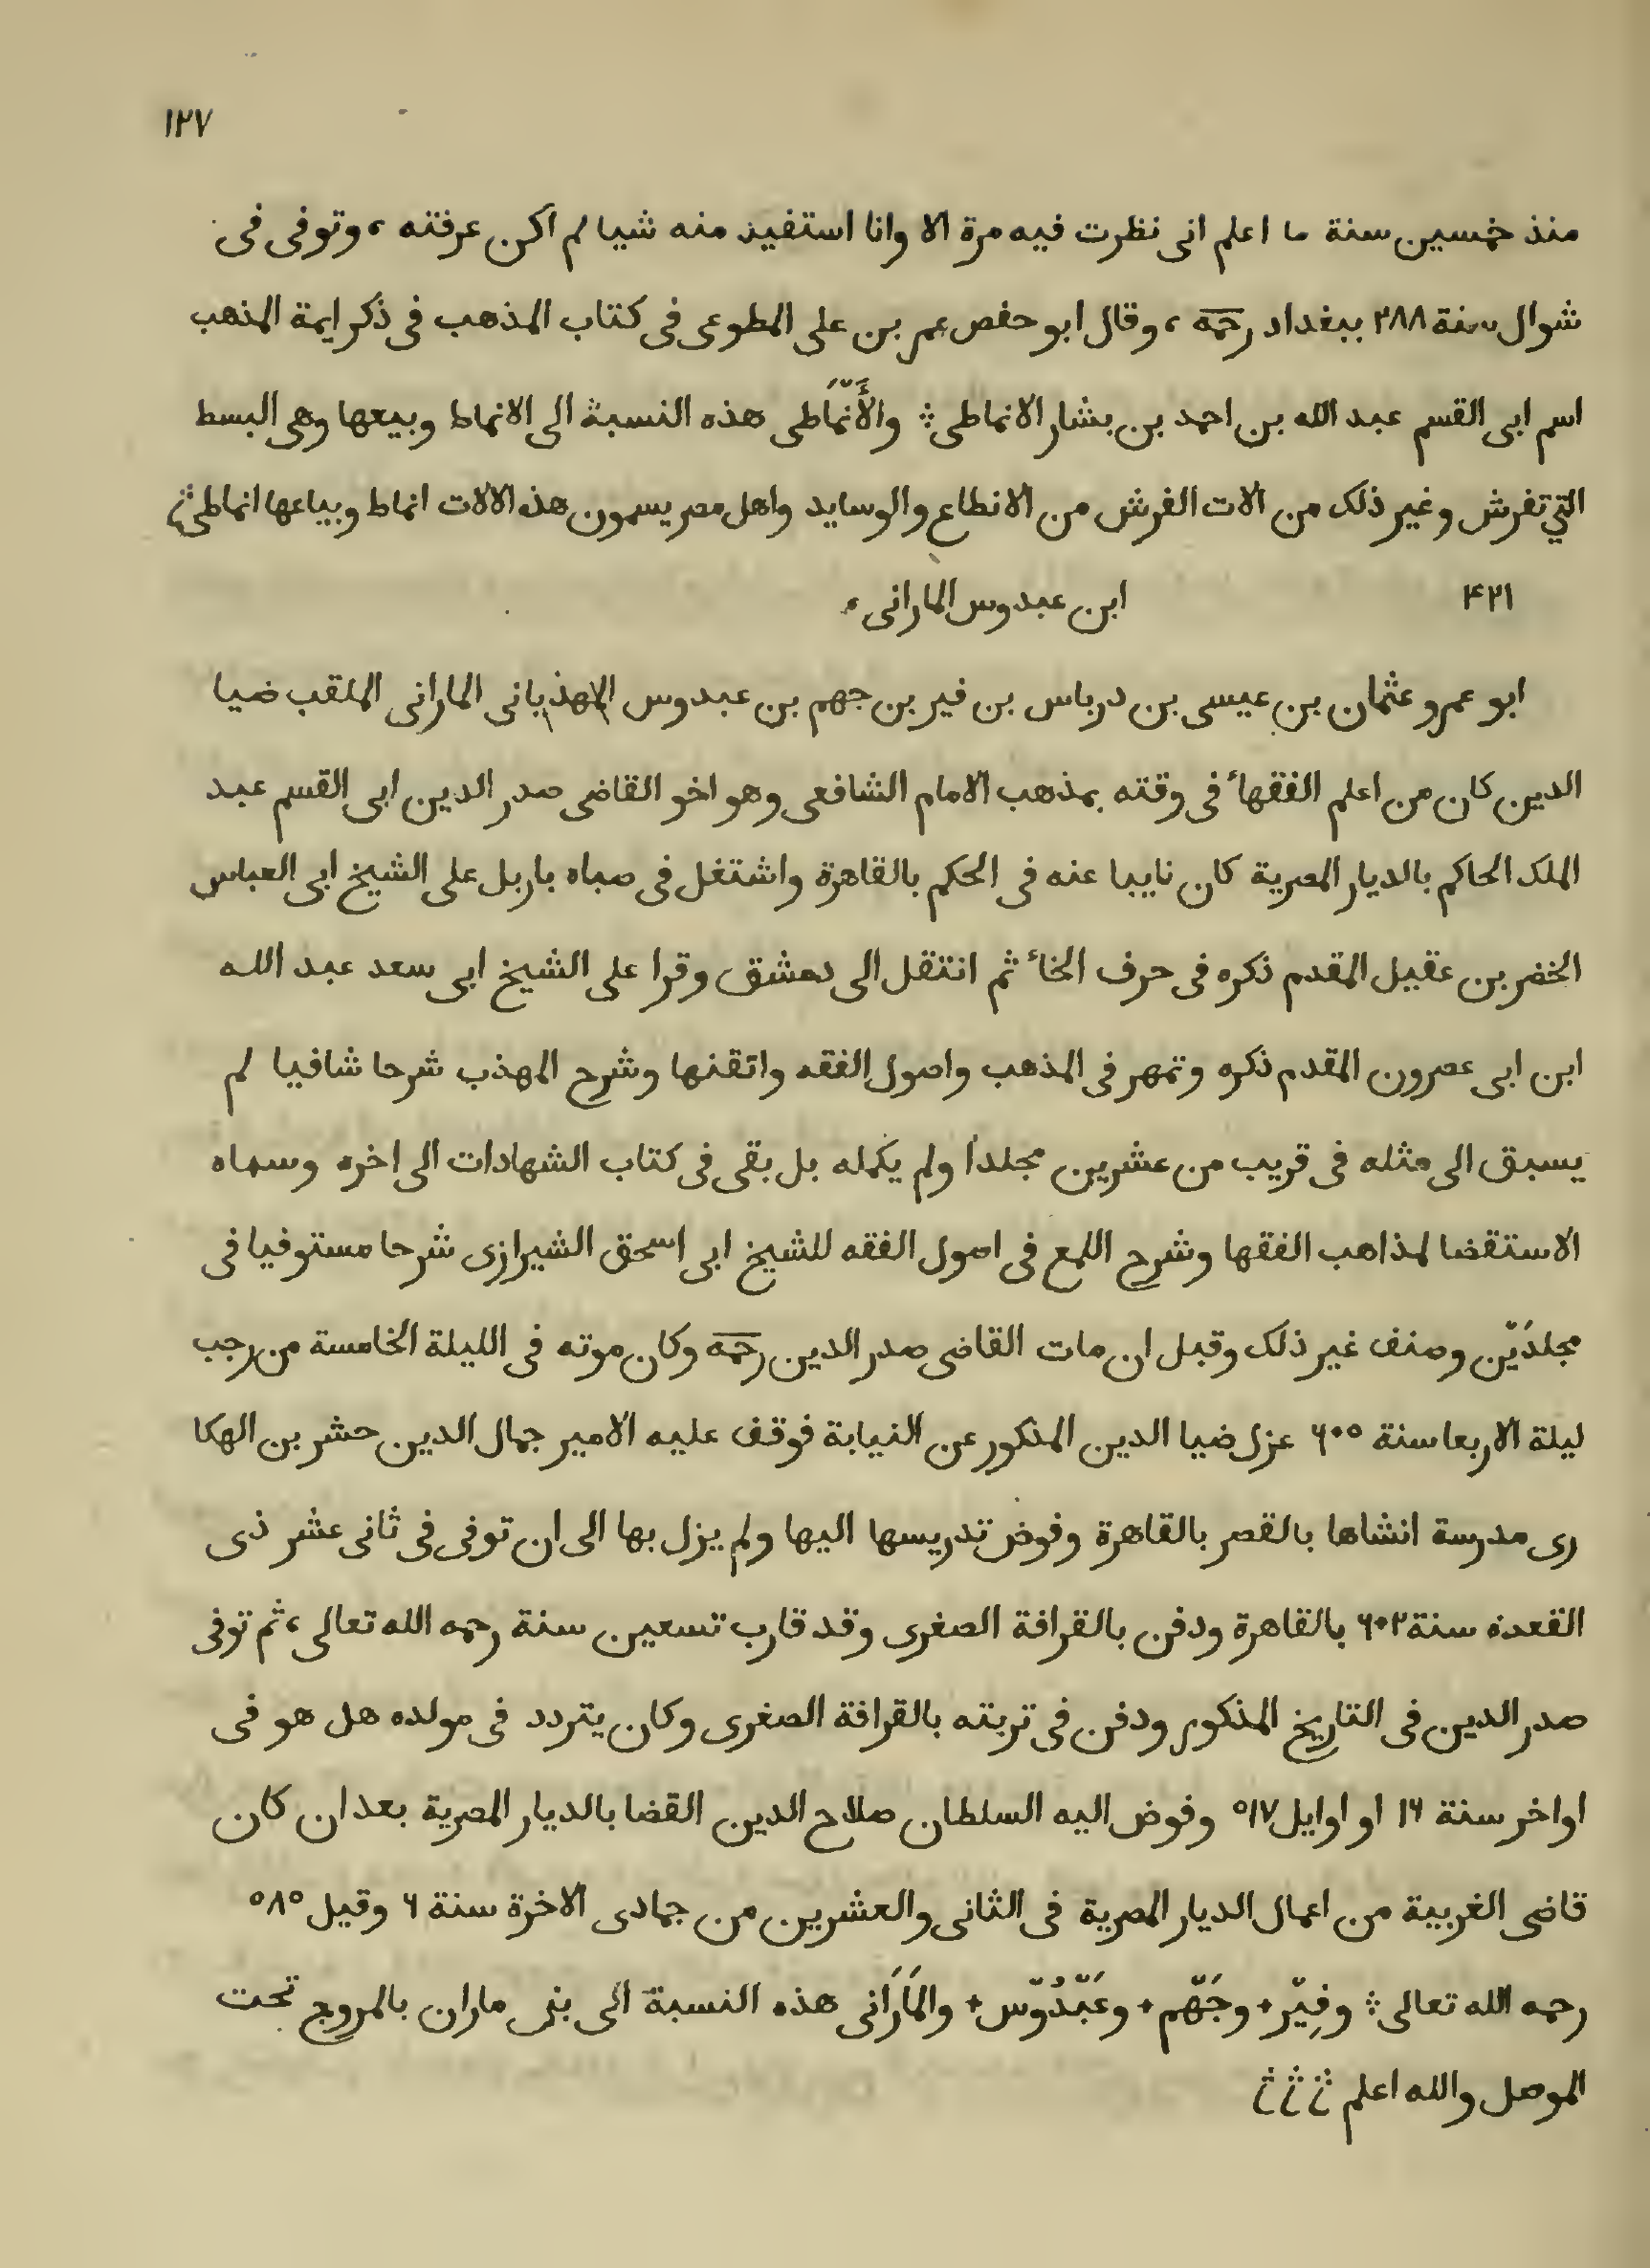 ١٢٧
منذ خمسين سنة ما اعلم انى نظرت فيه مرة الا وانا استفيد منه شيا لم اكن عرفته ، وتوفى فى
شوال سنة ٢٨٨ ببغداد رحمه ، وقال ابو حفص عمر بن على المطوعى فى كتاب المذهب فى ذكر ايمة المذهب
اسم ابى القسم عبد الله بن احمد بن بشار الانماطى ؞ والأَنْمَاطى هذه النسبة الى الانماط وبيعها وهى البسط
التي تفرش وغير ذلك من الات الفرش من الانطاع والوسايد واهل مصر يسمون هذه الالات انماط وبياعها انماطى ؞
٤٢١ ابن عبدوس المارانى ،
ابو عمرو عثمان بن عيسى بن درباس بن فير بن جهم بن عبدوس الهذبانى المارانى الملقب ضيا
الدين كان من اعلم الفقهاء فى وقته بمذهب الامام الشافعى وهو اخو القاضى صدر الدين ابى القسم عبد
الملك الحاكم بالديار المصرية كان نايبا عنه فى الحكم بالقاهرة واشتغل فى صباه باربل على الشيخ ابى العباس
الخضر بن عقيل المقدم ذكره فى حرف الخاء ثم انتقل الى دمشق وقرا على الشيخ ابى سعد عبد الله
ابن ابى عصرون المقدم ذكره وتمهر فى المذهب واصول الفقه واتقنها وشرح المهذب شرحا شافيا لم
يسبق الى مثله فى قريب من عشرين مجلدا ولم يكمله بل بقى فى كتاب الشهادات الى اخره وسماه
الاستقضا لمذاهب الفقها وشرح اللمع فى اصول الفقه للشيخ ابى اسحق الشيرازى شرحا مستوفيا فى
مجلدَيْن وصنف غير ذلك وقبل ان مات القاضى صدر الدين رحمه وكان موته فى الليلة الخامسة من رجب
ليلة الاربعا سنة ٦٠٥ عزل ضيا الدين المذكور عن النيابة فوقف عليه الامير جمال الدين حشر بن الهكا
رى مدرسة انشاها بالقصر بالقاهرة وفوض تدريسها اليها ولم يزل بها الى ان توفى فى ثانى عشر ذى
القعدة سنة ٦٠٢ بالقاهرة ودفن بالقرافة الصغرى وقد قارب تسعين سنة رحمه الله تعالى ، ثم توفى
صدر الدين فى التاريخ المذكور ودفن فى تربته بالقرافة الصغرى وكان يتردد فى مولده هل هو فى
اواخر سنة ١٦ او اوايل ٥١٧ وفوض اليه السلطان صلاح الدين القضا بالديار المصرية بعد ان كان
قاضى الغربية من اعمال الديار المصرية فى الثانى والعشرين من جمادى الاخرة سنة ٦ وقيل ٥٨٥
رحمه الله تعالى ؞ وفِيْر + وجَهْم + وعَبْدُوْس + والمَارَانى هذه النسبة الى بنى ماران بالمروج تحت
الموصل والله اعلم ؞ ؞ ؞